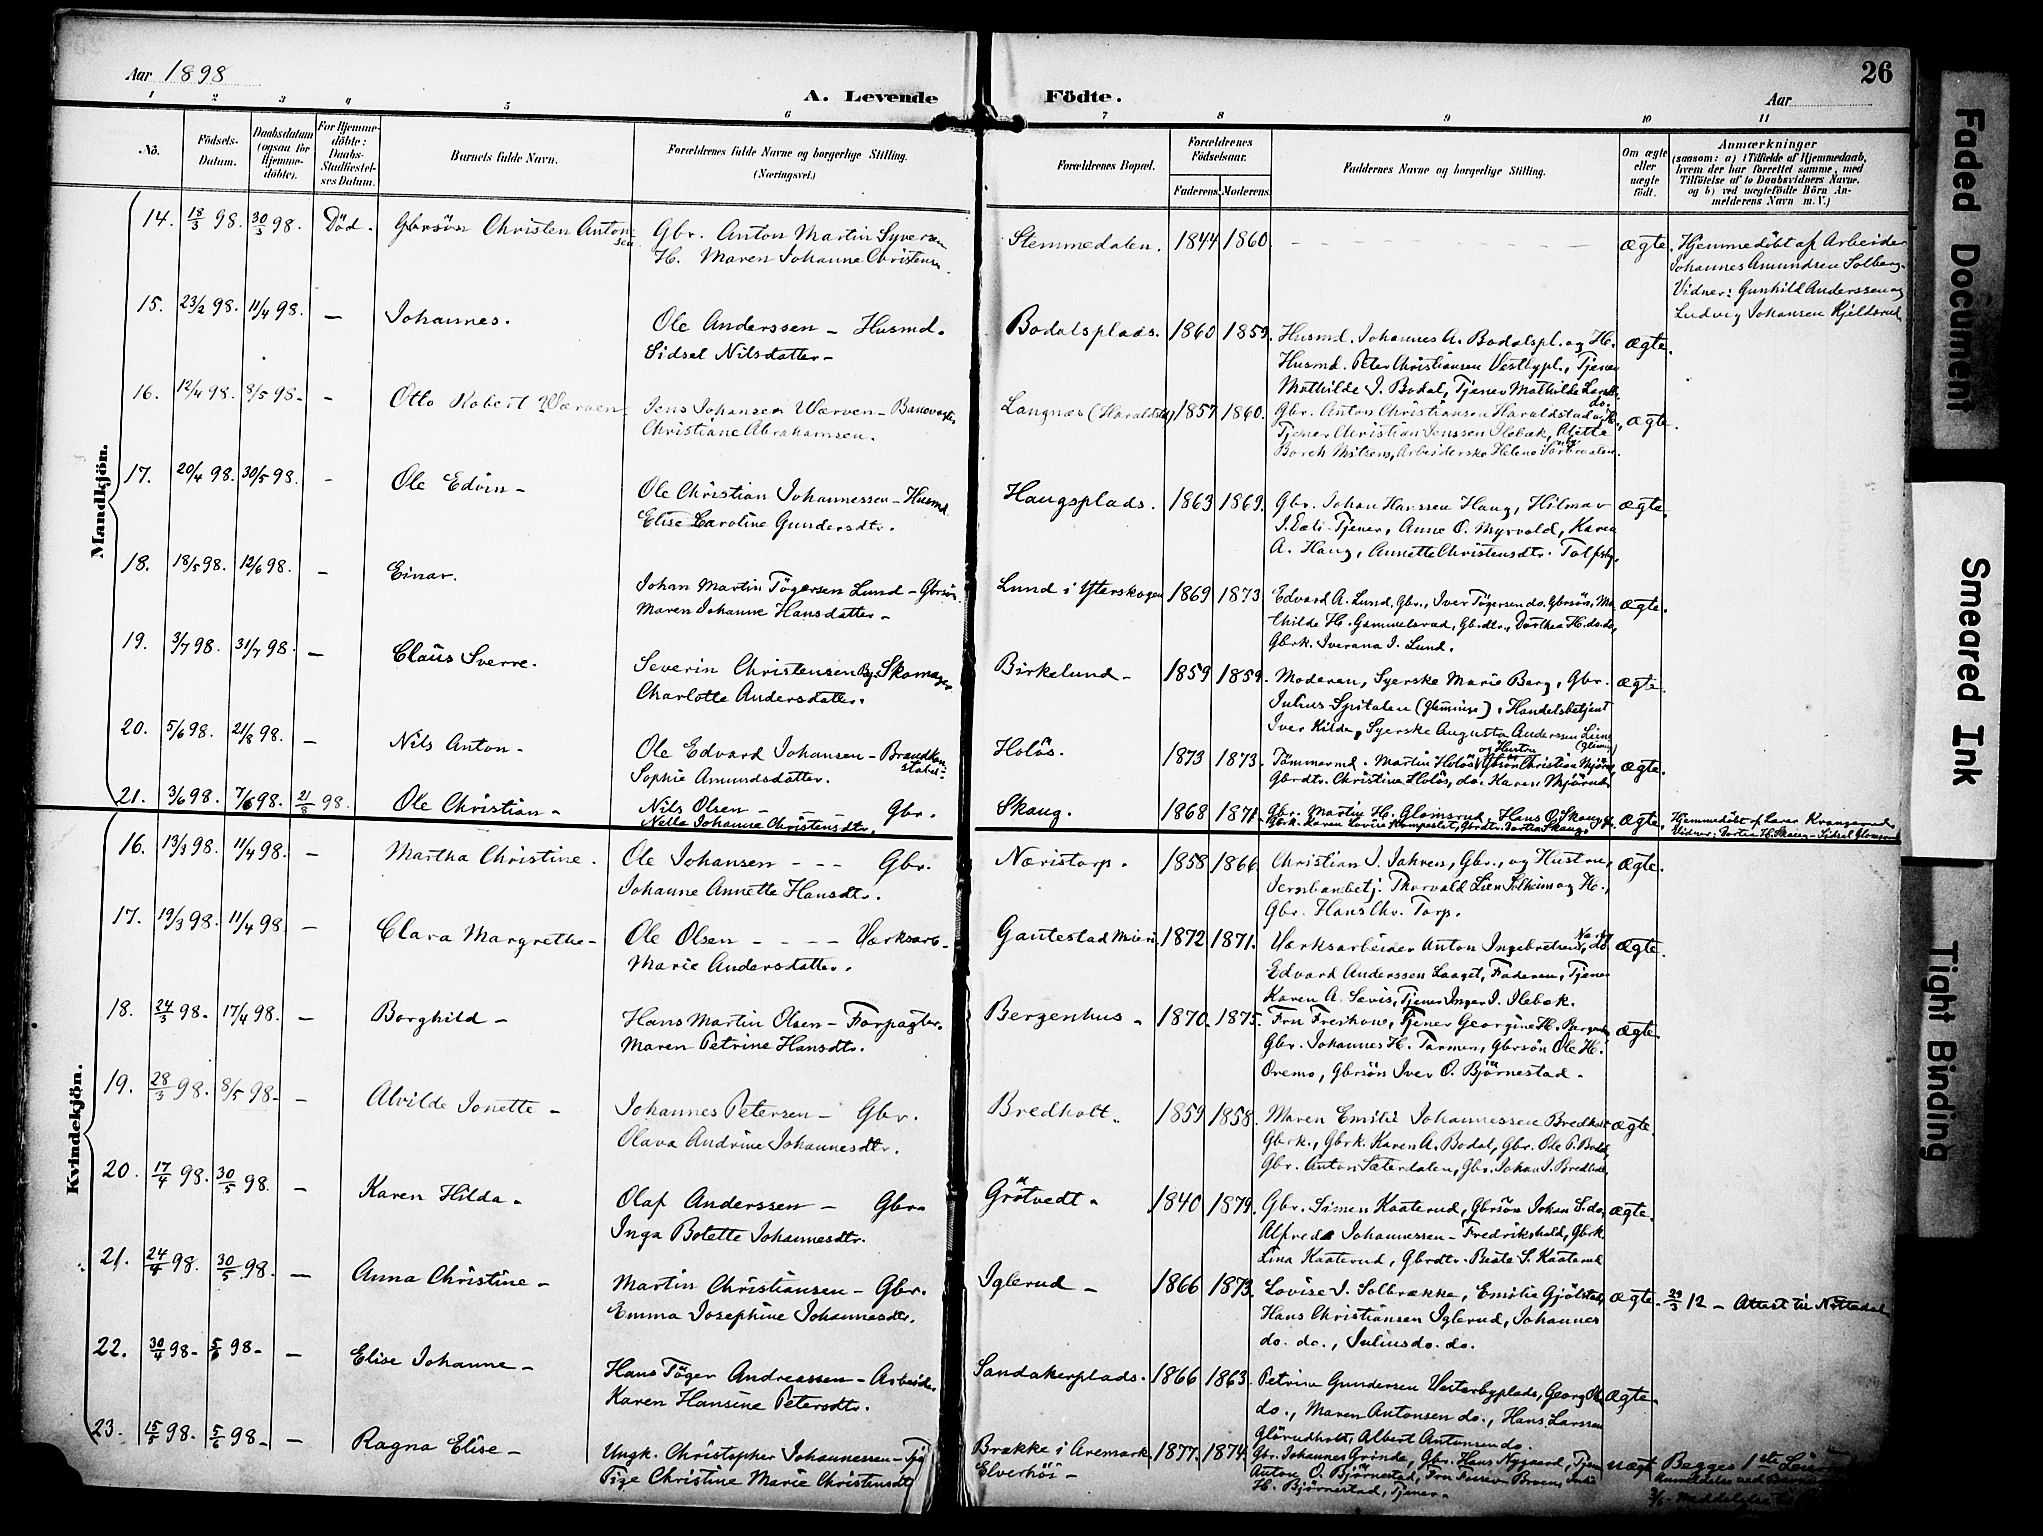 Aar 1898
A. Levende Födte.
Aar
26
1 2 3 4 5 6 7 8 9 10 11
No.
Födsels-Datum.
Daabsdatum (ogsaa for Hjemmedöbte).
For Hjemmedöbte: Daabs-Stadfæstelses Datum.
Barnets fulde Navn.
Forældrenes fulde Navne og borgerlige Stilling. (Næringsvei.)
Forældrenes Bopæl.
Forældrenes Födselsaar.
Faderens. Moderens.
Faddernes Navne og borgerlige Stilling.
Om ægte eller uægte födt.
Anmærkninger
(saasom: a) i Tilfælde af Hjemmedaab, hvem der har forrettet samme, med Tilföielse af to Daabsvidners Navne. og b) ved uægtefödte Börn Anmelderens Navn m. V.)
Mandkjön.
14. 18/3 98. 30/3 98. Död. Gbrsön Christen Antonsen Gbr. Anton Martin Syversen Stemmedalen. 1844 1860. ægte. Hjemmedöbt af Arbeider
H. Maren Johanne Christensen. Johannes Amundsen Solberg.
Vidner: Gunhild Anderssen og
Ludvig Johansen Kjeldsrud
15. 23/2 98. 11/4 98. — Johannes. Ole Anderssen – Husmd. Bodalsplads. 1860 1859. Husmd. Johannes A. Bodalspl. og H. ægte.
Sidsel Nilsdatter – Husmd. Peter Christiansen Vestbypl., Tjener
Mathilde J. Bodal, Tjener Mathilde
do.
16. 12/4 98. 8/5 98. - Otto Robert Wærven Jens Johansen Wærven – Banevogter Langnæs (Haraldstad) 1857 1860. Gbr. Anton Christiansen Haraldstad og H., ægte.
Christiane Abrahamsen. Tjener Christian Jenssen Ilebæk, Aletta
Borch Nilsens, Arbeiderske Helene
17. 20/4 98. 30/5 98. - Ole Edvin – Ole Christian Johannessen – Husmd Haugsplads. 1863 1869. Gbr. Johan Hanssen Haug, Hilmar ægte.
Elise Caroline Gundersdtr. Tjener, Anne O. Myrvold, Karen
A. Haug, Annette Christensdtr.
18. 18/5 98. 12/6 98. – Einar. Johan Martin Tögersen Lund – Gbrsön. Lund i Ytterskogen 1869 1873. Edvard A. Lund, Gbr., Iver Tögersen do. Gbrsön, Ma- ægte.
Maren Johanne Hansdatter – thilde H. Gammelsrud, Gbdtr., Dorthea H. do. do.,
Gbrk. Iverana I. Lund.
19. 3/7 98. 31/7 98. – Claus Sverre. Severin Christensen By. Skomager Birkelund – 1859 1859. Moderen, Syerske Marie Berg, Gbr. ægte.
Charlotte Andersdatter. Julius Spitalen (Glemminge), Handelsbetjent
Iver Kilde, Syerske Augusta Anderssen Liene
20. 5/6 98. 21/8 98. – Nils Anton – Ole Edvard Johansen – Brandkonstabel. Holös. 1873 1873. Tömmermd. Martin Holös og Hustru, Gbrsön Christian ægte.
Sophie Amundsdatter. Gbrdtr. Christine Holös, do. Karen
21. 3/6 98. 7/6 98. 21/8 98. Ole Christian – Nils Olsen – Gbr. Skaug. 1868 1871. Gbr. Martin H. Glomsrud, Hans O. Skaug, ægte. Hjemmedöbt af
Nella Johanne Christensdtr.
Kvindekjön.
16. 13/3 98. 11/4 98. – Martha Christine. Ole Johansen – – – Gbr. Næristorp. 1858 1866. Christian J. Jahren, Gbr., og Hustru, ægte.
Johanne Annette Hansdtr. Jernbanebetj. Thorvald Lien Solheim og H.,
Gbr. Hans Chr. Torp.
17. 19/3 98. 11/4 98. – Clara Margrethe – Ole Olsen – – – – Værksarb. Gautestad Meieri. 1872 1871. Værksarbeider Anton Ingebretsen, do ægte.
Marie Andersdatter. Edvard Anderssen Laaget, Faderen, Tjener
Karen A. Sevis, Tjener Inger J. Ilebæk.
18. 24/3 98. 17/4 98. – Borghild – Hans Martin Olsen – Forpagter. Bergenhus – 1870. 1875. Fru Freikow, Tjener Georgine H. ægte.
Maren Petrine Hansdtr. Gbr. Johannes H. Tormen, Gbrsön Ole H.
Ovemo, Gbrsön Iver O. Björnestad –
19. 28/3 98. 8/5 98. – Alvilde Jonette – Johannes Petersen – Gbr. Bredholt. 1859 1858. Maren Emilie Johannessen Bredholt ægte.
Olava Andrine Johannesdtr. Gbrk., Gbrk. Karen A. Bodal, Gbr. Ole P. Bodal,
Gbr. Anton Sæterdalen, Gbr. Johan J. Bredholt
20. 17/4 98. 30/5 98. – Karen Hilda – Olaf Anderssen – Gbr. Grötvedt – 1840 1879. Gbr. Simen Kaaterud, Gbrsön Johan S. do, ægte.
Inga Bolette Johannesdtr. Alfreda Johannessen – Fredrikshald, Gbrk
Lina Kaaterud, Gbrdtr. Beate S. Kaaterud
21. 24/4 98. 30/5 98. – Anna Christine – Martin Christiansen – Gbr. Iglerud – 1866 1873. Lovise J. Solbrække, Emilie Gjölstad, ægte. 29/3 12 – Attest til Nittedal
Emma Josephine Johannesdtr. Hans Christiansen Iglerud, Johannes
do. do., Julius do. do.
22. 30/4 98. 5/6 98. – Elise Johanne – Hans Töger Andreassen – Arbeider. Sandakerplads. 1866 1863. Petrine Gundersen Vesterbyplads, Georg ægte.
Karen Hansine Petersdtr. do., Maren Antonsen do., Hans Larssen
Glörudholt, Albert Antonsen do.
23. 15/5 98. 5/6 98. – Ragna Elise – Ungk. Christopher Johannessen – Tj Brække i Aremark. 1877. 1874. Gbr. Johannes Grinde, Gbr. Hans Nygaard, Tjener uægte Begges 1ste
Pige Christine Marie Christensdtr Elverhöi – Anton O. Björnestad, Fru
H. Björnestad, Tjener.
Faded Document
Smeared Ink
Tight Binding